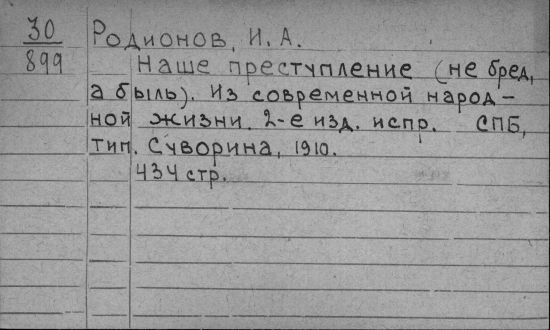 30
899
Родионов, И. А.
Наше преступление (не бред,
а быль). Из современной народ-
ной жизни. 2-е изд. испр. СПБ,
тип. Суворина, 1910.
434 стр.